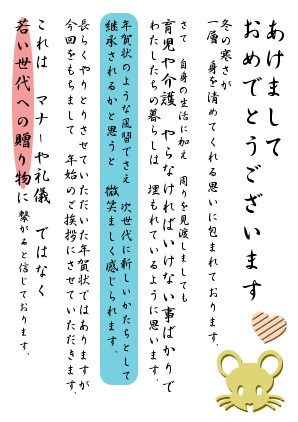 あけまして
おめでとうございます
冬の寒さが
一層 身を清めてくれる思いに包まれております。
さて 自身の生活に加え 周りを見渡しましても
育児や介護 やらなければいけない事ばかりで
わたしたちの暮らしは 埋もれているように思います。
年賀状のような風習でさえ 次世代に新しいかたちとして
継承されるかと思うと 微笑ましく感じられます。
長らくやりとりさせていただいた年賀状ではありますが
今回をもちまして 年始のご挨拶にさせていただきます。
これは マナーや礼儀 ではなく
若い世代への贈り物に繋がると信じております。